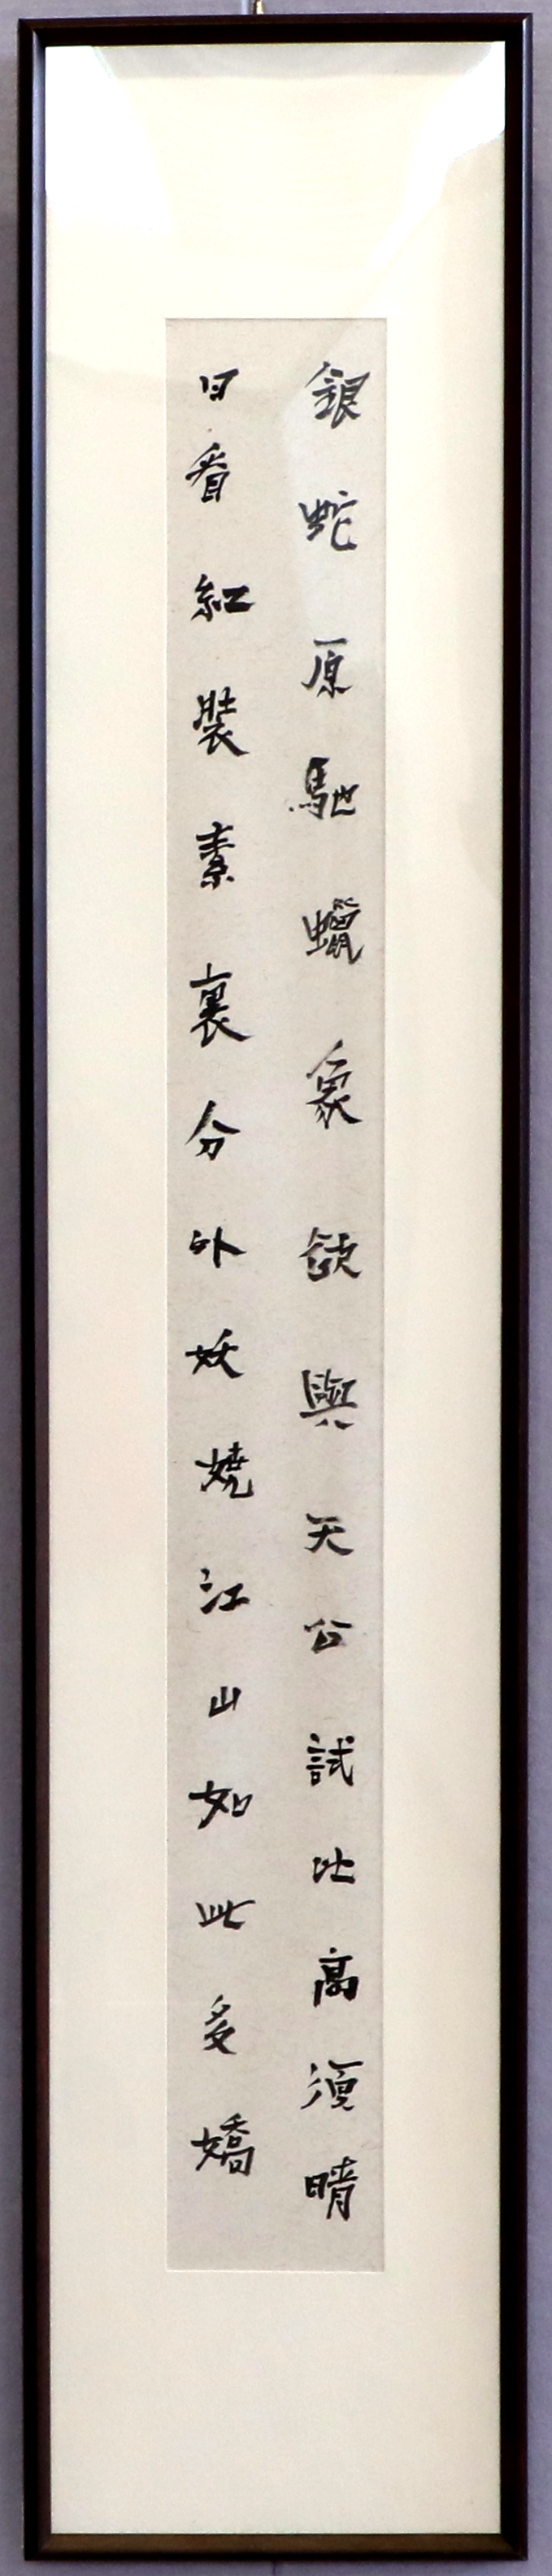 銀蛇原馳蠟象欲與天公試比高須晴
日看紅裝素裹分外妖嬈江山如此多嬌